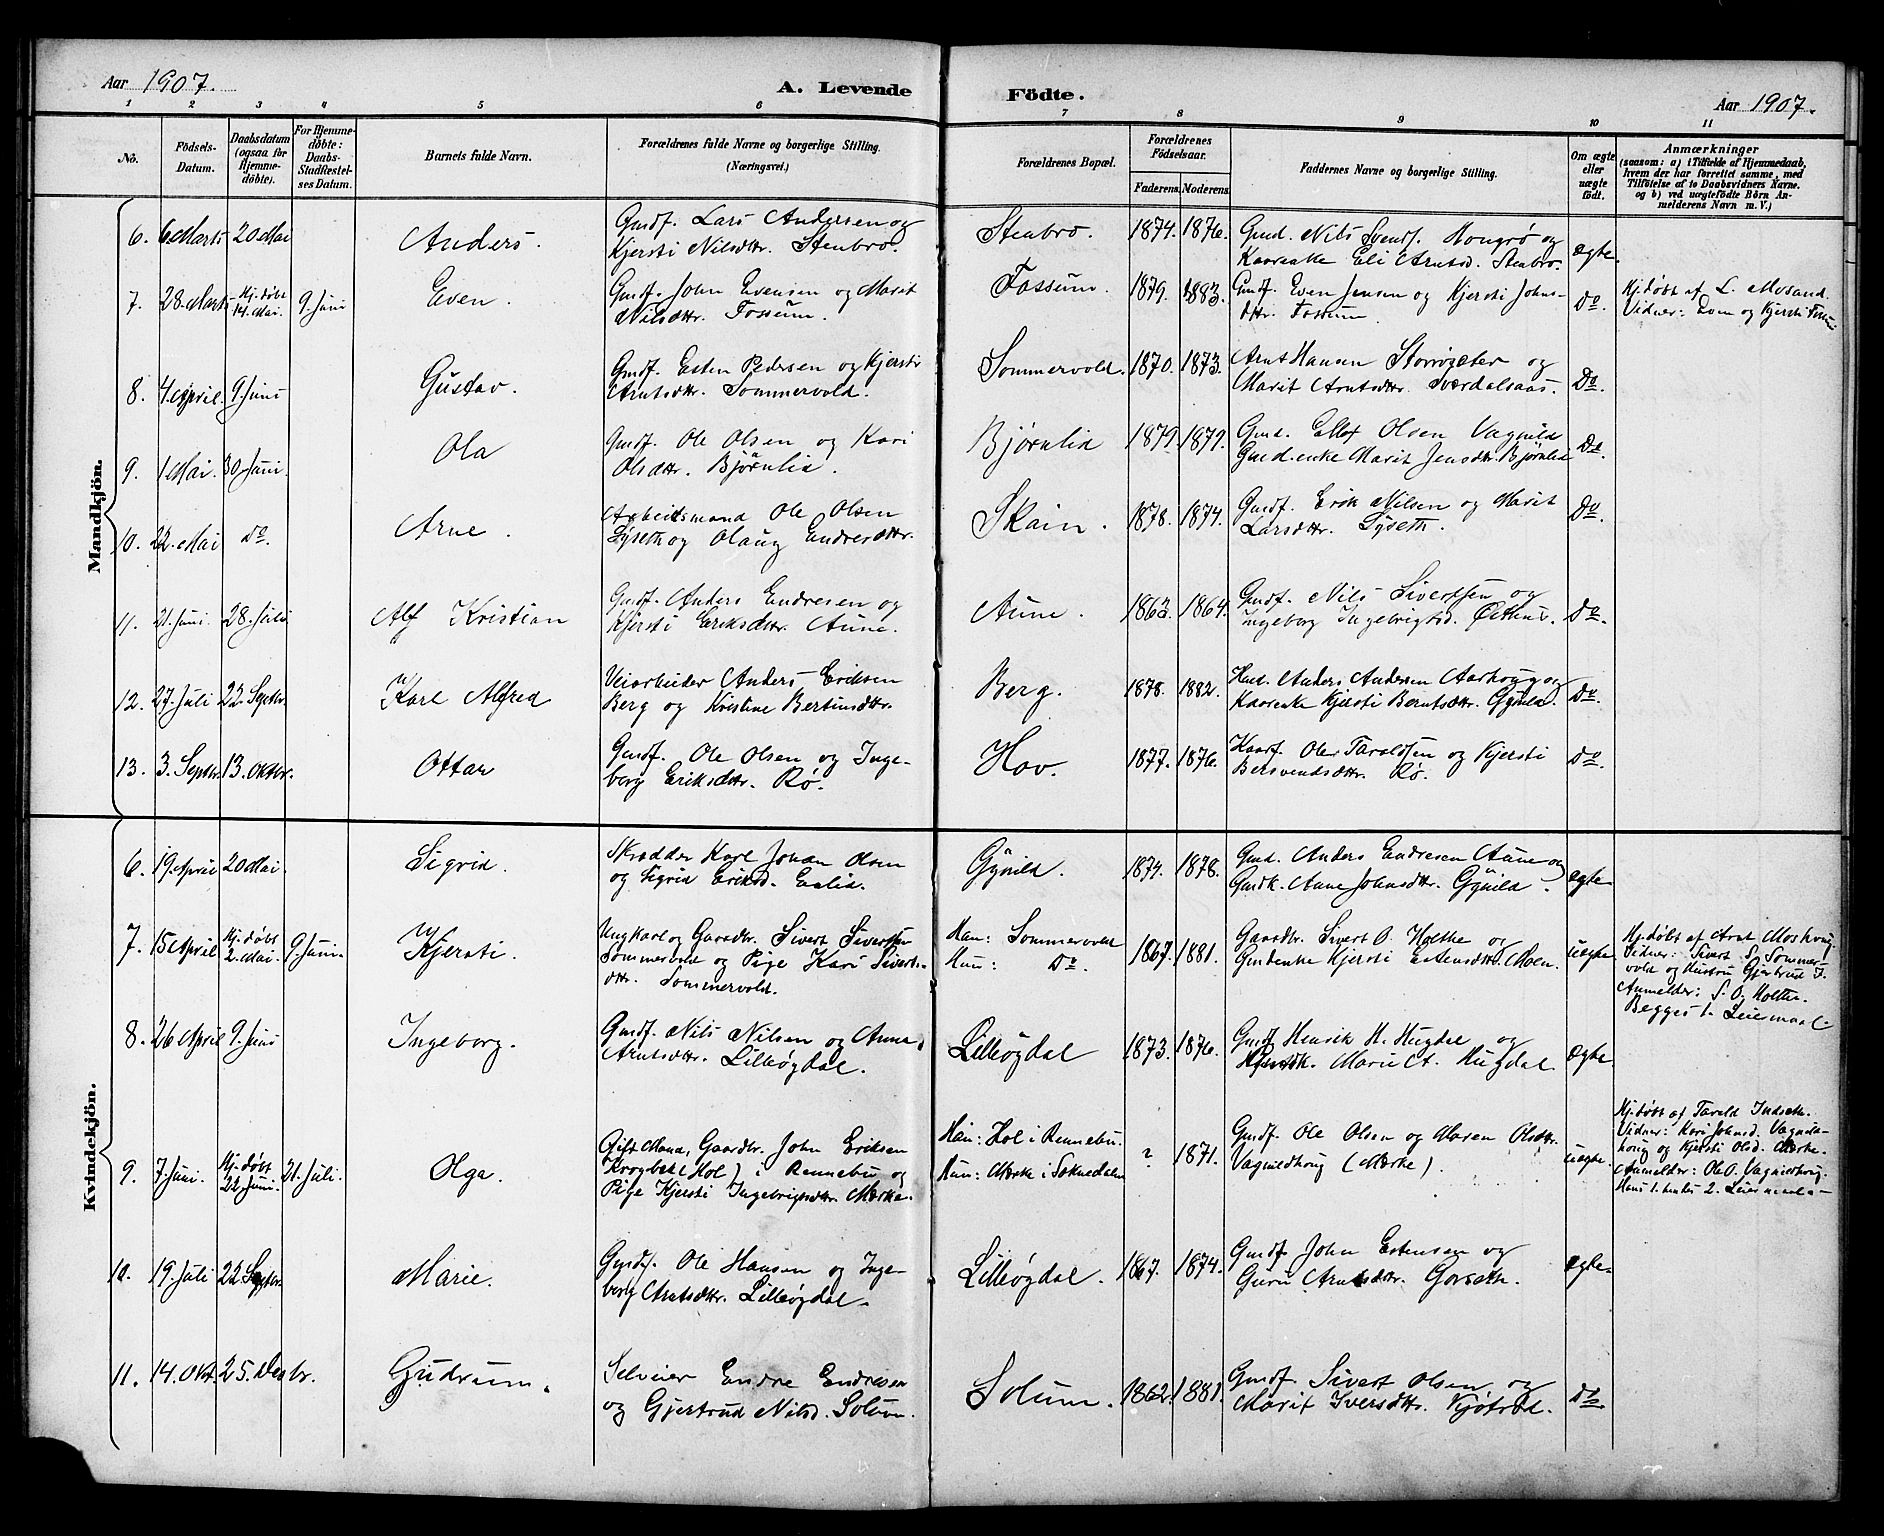 Aar 1907.
A. Levende Födte.
Aar 1907.
1 2 3 4 5 6 7 8 9 10 11
No.
Födsels-Datum.
Daabsdatum (ogsaa for Hjemme-döbte).
For Hjemme-döbte: Daabs-Stadfæstel-ses Datum.
Barnets fulde Navn.
Forældrenes fulde Navne og borgerlige Stilling. (Næringsvei.)
Forældrenes Bopæl.
Forældrenes Födselsaar.
Faderens. Moderens.
Faddernes Navne og borgerlige Stilling.
Om ægte eller uægte født.
Anmærkninger
(saasom: a) i Tilfælde af Hjemmedaab,
hvem der har forrettet samme, med
Tilföielse af to Daabsvidners Navne.
og b) ved uægtefödte Börn An-
melderens Navn m. V.)
Mandkjön.
6. 6 Marts 20 Mai Anders. Gmdf. Lars Andersen og
Kjersti Nilsdttr. Stenbro. Stenbro. 1874. 1876. Gmd. Nils Svends. Hongrø og
Kaarenke Eli Arntsd. Stenbro. Ægte.
7. 28. Marts Hj. døbt 14. Mai. 9 Juni Even. Gmdf. John Evensen og Marit
Nilsdttr. Fossum. Fossum. 1879. 1883. Gmdf. Even Jensen og Kjersti Johns-
dttr. Fossum. Do. Hj. døbt af L. Mosand.
Vidner: Even og Kjersti Fossum
8. 4. April. 9. Juni Gustav. Gmdf. Esten Pedersen og Kjersti
Arntsdttr. Sommervold. Sommervold. 1870. 1873. Arnt Hansen Storrøgeter og
Marit Arntsdttr. Sværdalsaas. Do.
9. 1 Mai. 30 Juni. Ola Gmdf. Ole Olsen og Kari
Olsdttr. Bjørnlia. Bjørnlia 1879. 1879. Gmd. Ellef Olsen Vagnild
Gmd.enke Marit Jensdttr. Bjørnlia Do.
10. 22. Mai Do. Arne. Arbeidsmand Ole Olsen
Lyseth og Olaug Endresdttr. Skain. 1878. 1874. Gmdf. Erik Nilsen og Marit
Larsdttr. Lyseth. Do.
11. 21. Juni. 28. Juli Alf Kristian Gmdf. Anders Endresen og
Kjersti Eriksdttr. Aune. Aune. 1863. 1864. Gmdf. Nils Sivertsen og
Ingeborg Ingebrigtsd. Do.
12. 27. Juli 22. Septbr. Karl Alfred Veiarbeider Anders Eriksen
Berg og Kristine Berntsdttr. Berg. 1878. 1882. Gmd. Anders Andersen Aarhoug og
Kaarenke Kjersti Berntsdttr. Gynild. Do.
13. 3. Septbr. 13. Oktbr. Ottar Gmdf. Ole Olsen og Inge-
borg Eriksdttr. Rø. Hov. 1877. 1876. Kaarf. Ole Taraldsen og Kjersti
Bersvendsdttr. Rø. Do.
Kvindekjön.
6. 19. April 20 Mai. Sigrid. Skrædder Karl Johan Olsen
og Sigrid Eriksd. Enlid. Gynild. 1874. 1878. Gmd. Anders Endresen Aune og
Gmdk. Anne Johnsdttr. Gynild. Ægte
7. 15 April Hj. døbt 2. Mai. 9. Juni. Kjersti. Ungkarl og Gaardbr. Sivert Sivertsen
Sommervold og Pige Kari Siverts-
dttr. Sommervold. Han: Sommervold
Hun: Do. 1867. 1881. Gaardbr. Sivert O. Holthe og
Gmdenke Kjersti Estensdttr. Moen. uægte Hj. døbt af Arnt Moshoug.
Vidner: Sivert S. Sommer-
vold og Hustru Gjertrud I.
Anmelder: S. O. Holthe.
Begges 1. Leiermaal.
8. 26 April 9. Juni Ingeborg. Gmdf. Nils Nilsen og Anne
Arntsdttr. Lilleøgdal. Lilleøgdal 1873. 1876. Gmdf. Henrik H. Hugdal og
Gmdk. Marie A. Hugdal. Ægte.
9. 7. Juni. Hj. døbt 22 Juni. 21. Juli. Olga. Gift Mand, Gaardbr. John Eriksen
(Hol) i Rennebu og
Pige Kjersti Ingebrigtsdttr. Mærke. Han: Hol i Rennebu.
Hun: Mærke i Soknedalen ? 1871. Gmdf. Ole Olsen og Maren Olsdttr.
Vagnildhoug (Mærke). uægte. Hj. døbt af Tarald Indseth.
Vidner: Kari Johnsd. Vagnild-
houg og Kjersti Olsd. Mærke.
Anmelder: Ole O. Vagnildhoug.
Hans 1. hendes 2. Leiermaal.
10. 19. Juli 22 Septbr. Marie. Gmdf. Ole Hansen og Inge-
borg Arntsdttr. Lilleøgdal. Lilleøgdal. 1867. 1874. Gmdf. John Estensen og
Guru Arntsdttr. Gorseth. Ægte.
11. 14. Okt. 25. Desbr. Gudrun. Selveier Endre Endresen
og Gjertrud Nilsd. Solum. Solum. 1862. 1881. Gmdf. Sivert Olsen og
Marit Iversdttr. Do.